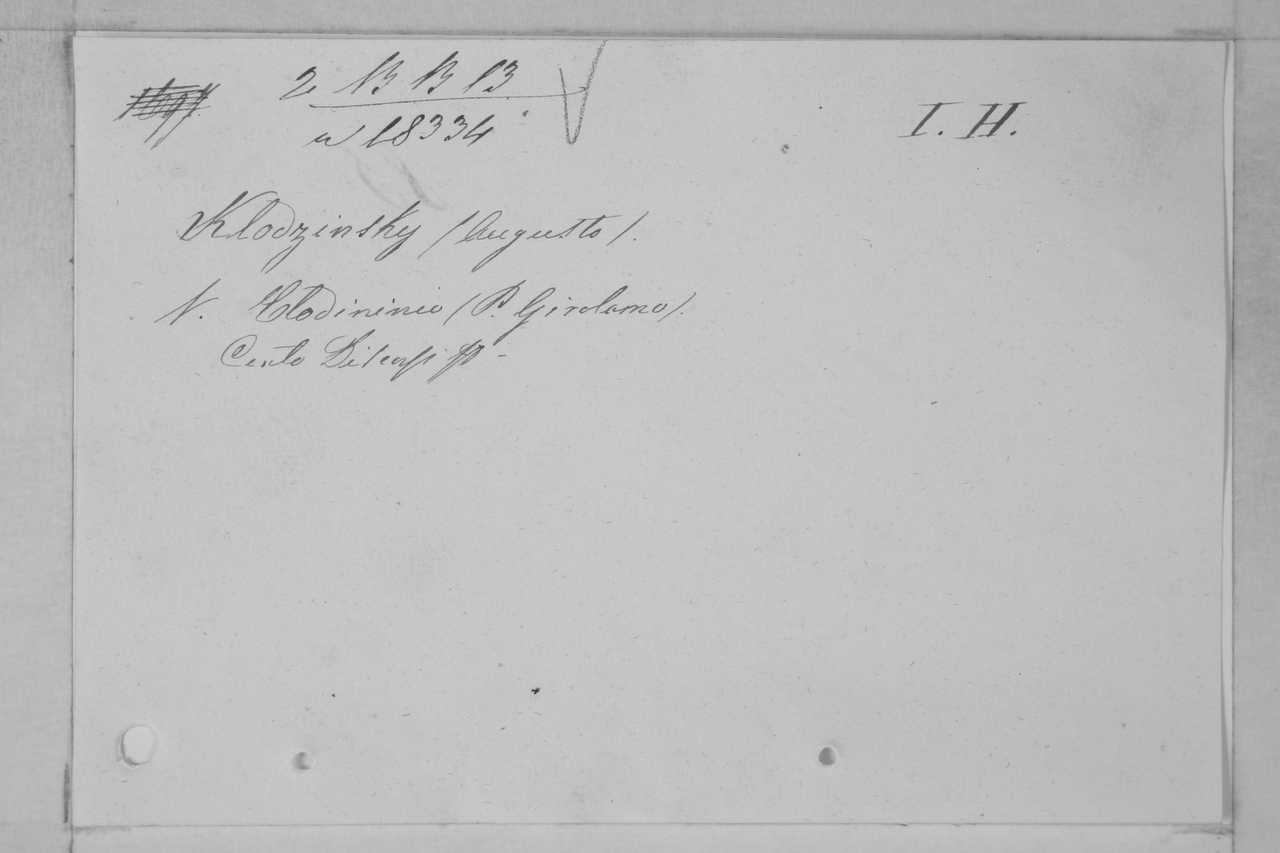 2 B B 13 I. H.
a 18334
Klodzinsky (Augusto).
V. Clodininio (P. Girolamo).
Cento Discorsi